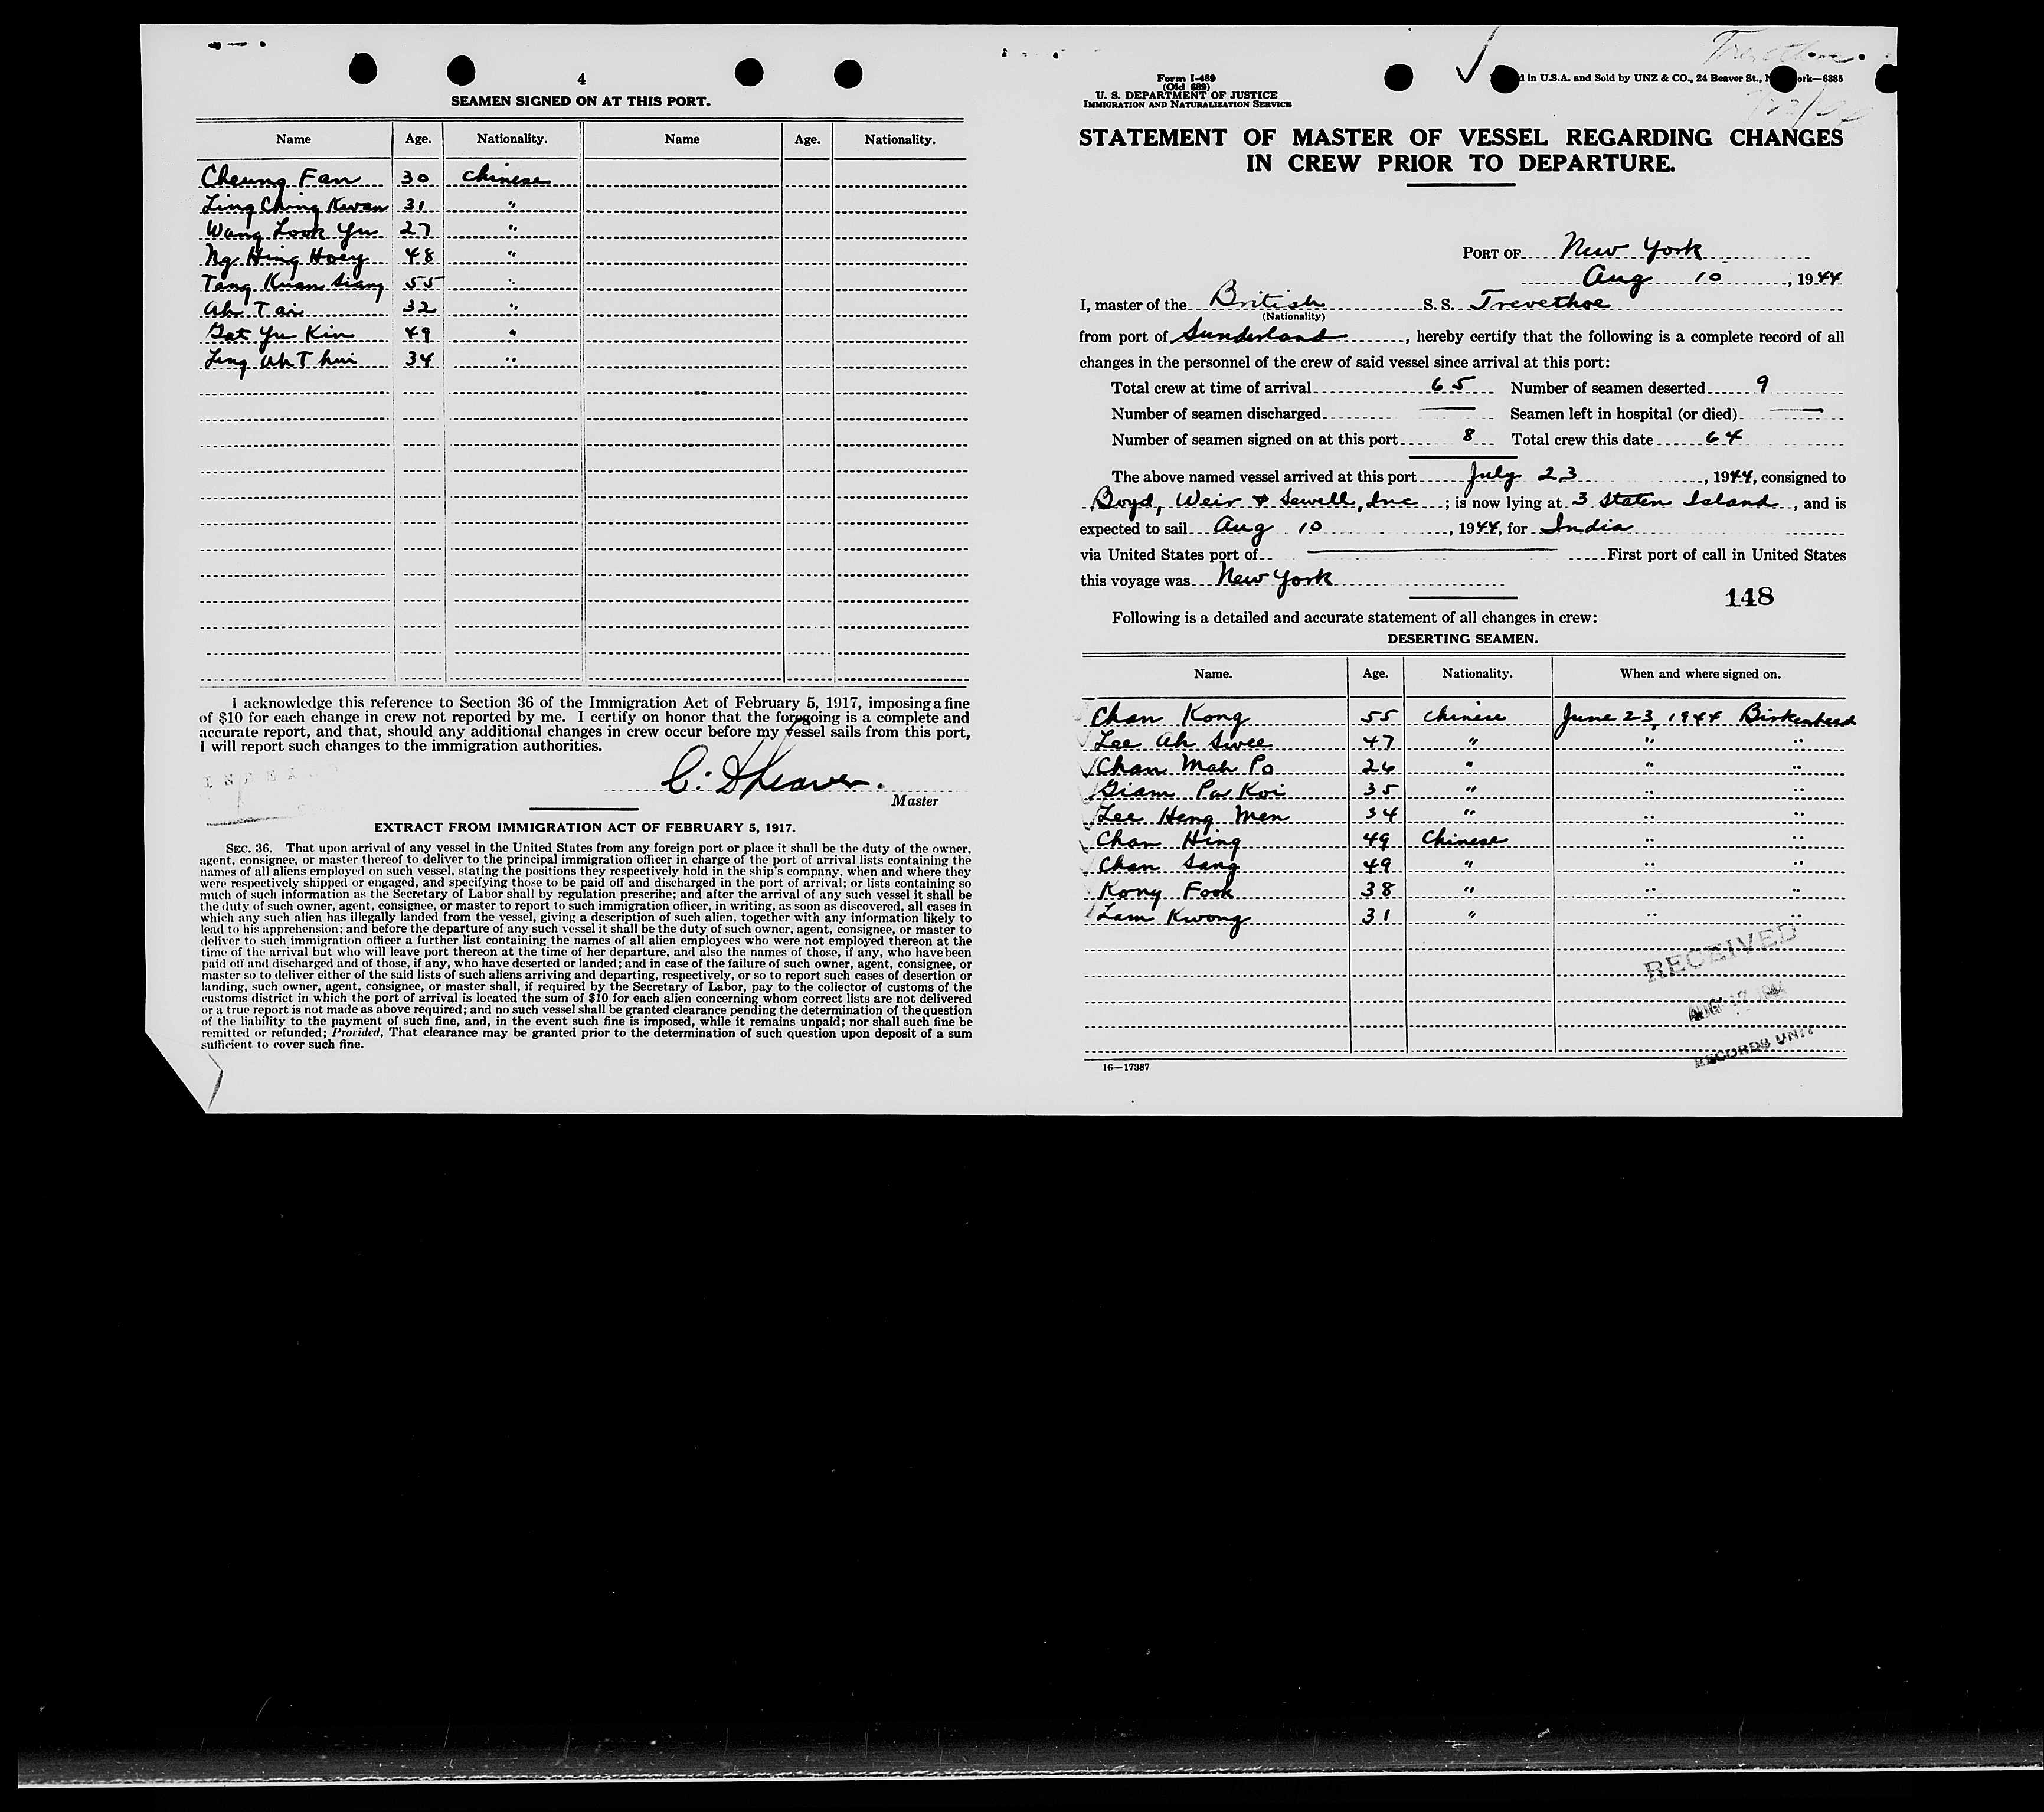 4
SEAMEN SIGNED ON AT THIS PORT.
Name Age. Nationality. Name Age. Nationality.
Cheung Fan 30 Chinese
Ling Ching Kwan 31 "
Wang Look Yu 27 "
Ng Hing Hoey 48 "
Tang Kuan Siang 55 "
Ah Tai 32 "
Gat Yu Kin 49 "
Leng Ah Thui 34 "
I acknowledge this reference to Section 36 of the Immigration Act of February 5, 1917, imposing a fine
of $10 for each change in crew not reported by me. I certify on honor that the foregoing is a complete and
accurate report, and that, should any additional changes in crew occur before my vessel sails from this port,
I will report such changes to the immigration authorities.
C. Shearer.
Master
EXTRACT FROM IMMIGRATION ACT OF FEBRUARY 5, 1917.
SEC. 36. That upon arrival of any vessel in the United States from any foreign port or place it shall be the duty of the owner,
agent, consignee, or master thereof to deliver to the principal immigration officer in charge of the port of arrival lists containing the
names of all aliens employed on such vessel, stating the positions they respectively hold in the ship's company, when and where they
were respectively shipped or engaged, and specifying those to be paid off and discharged in the port of arrival; or lists containing so
much of such information as the Secretary of Labor shall by regulation prescribe; and after the arrival of any such vessel it shall be
the duty of such owner, agent, consignee, or master to report to such immigration officer, in writing, as soon as discovered, all cases in
which any such alien has illegally landed from the vessel, giving a description of such alien, together with any information likely to
lead to his apprehension; and before the departure of any such vessel it shall be the duty of such owner, agent, consignee, or master to
deliver to such immigration officer a further list containing the names of all alien employees who were not employed thereon at the
time of the arrival but who will leave port thereon at the time of her departure, and also the names of those, if any, who have been
paid off and discharged and of those, if any, who have deserted or landed; and in case of the failure of such owner, agent, consignee, or
master so to deliver either of the said lists of such aliens arriving and departing, respectively, or so to report such cases of desertion or
landing, such owner, agent, consignee, or master shall, if required by the Secretary of Labor, pay to the collector of customs of the
customs district in which the port of arrival is located the sum of $10 for each alien concerning whom correct lists are not delivered
or a true report is not made as above required; and no such vessel shall be granted clearance pending the determination of the question
of the liability to the payment of such fine, and, in the event such fine is imposed, while it remains unpaid; nor shall such fine be
remitted or refunded; Provided, That clearance may be granted prior to the determination of such question upon deposit of a sum
sufficient to cover such fine.
Form I-489
(Old 689)
U. S. DEPARTMENT OF JUSTICE
IMMIGRATION AND NATURALIZATION SERVICE
in U.S.A. and Sold by UNZ & CO., 24 Beaver St., N ork—6385
STATEMENT OF MASTER OF VESSEL REGARDING CHANGES
IN CREW PRIOR TO DEPARTURE.
PORT OF New York
Aug 10, 1944
I, master of the British S. S. Trevethoe
(Nationality)
from port of Sunderland, hereby certify that the following is a complete record of all
changes in the personnel of the crew of said vessel since arrival at this port:
Total crew at time of arrival 65 Number of seamen deserted 9
Number of seamen discharged — Seamen left in hospital (or died) —
Number of seamen signed on at this port 8 Total crew this date 64
The above named vessel arrived at this port July 23, 1944, consigned to
Boyd, Weir & Sewell, Inc; is now lying at 3 Staten Island, and is
expected to sail Aug 10, 1944, for India
via United States port of — First port of call in United States
this voyage was New York
148
Following is a detailed and accurate statement of all changes in crew:
DESERTING SEAMEN.
Name. Age. Nationality. When and where signed on.
Chan Kong 55 Chinese June 23, 1944 Birkenhead
Lee Ah Swee 47 " " "
Chan Mah Po 26 " " "
Giam Pa Koi 35 " " "
Lee Heng Men 34 " " "
Chan Hing 49 Chinese " "
Chan Sang 49 " " "
Kong Fook 38 " " "
Lam Kwong 31 " " "
RECEIVED
AUG 17 1944
RECORDS UNIT
16—17387